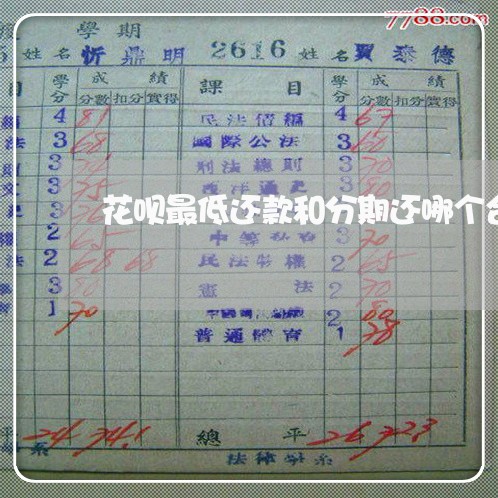 7788.com
學期
姓名 忻鼎明 2616 姓名 賈泰德
目 學分 成績 課目 學分 成績
分數 扣分 實得 分數 扣分 實得
4 81 民法債編 4 67
法 3 68 國際公法 3 60
3 刑法總則 3 70
3 75 西洋通史 3 80
花呗最低还款和分期还哪个合
2 65 3 70
法 2 68 68 民法物權 2 65
3 80 憲法 2 70
1 70 2 80
普通體育 1 78
平 24 74.1 總平 26 72.3
系 法律學系